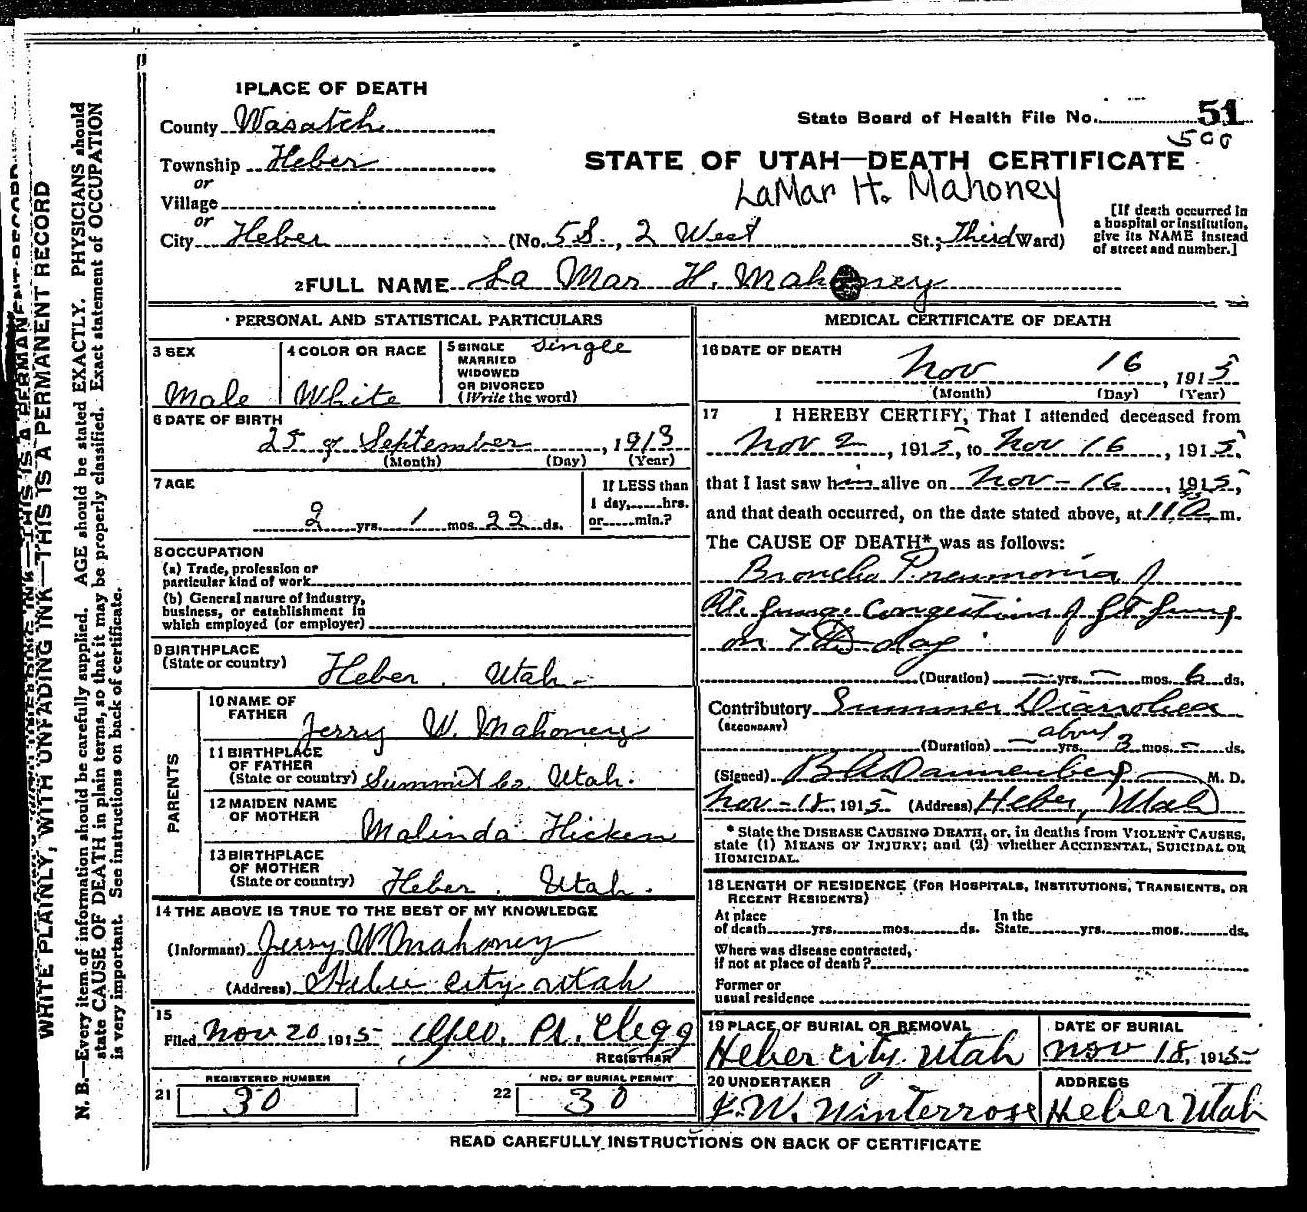 1 PLACE OF DEATH
County Wasatch
State Board of Health File No. 51
500
Township Heber
or
Village
or
STATE OF UTAH—DEATH CERTIFICATE
LaMar H. Mahoney
City Heber (No. 5S., 2 West St.; Third Ward)
[If death occurred in a hospital or institution, give its NAME instead of street and number.]
2 FULL NAME La Mar H. Mahoney
PERSONAL AND STATISTICAL PARTICULARS
3 SEX
Male
4 COLOR OR RACE
White
5 SINGLE
MARRIED
WIDOWED
OR DIVORCED
(Write the word)
Single
6 DATE OF BIRTH
25 of September, 1913
(Month) (Day) (Year)
7 AGE
2 yrs. 1 mos. 22 ds.
If LESS than
1 day,......hrs.
or......min.?
8 OCCUPATION
(a) Trade, profession or
particular kind of work
(b) General nature of industry,
business, or establishment in
which employed (or employer)
9 BIRTHPLACE
(State or country) Heber. Utah
PARENTS
10 NAME OF
FATHER Jerry W. Mahoney
11 BIRTHPLACE
OF FATHER
(State or country) Summit Co Utah.
12 MAIDEN NAME
OF MOTHER Malinda Hicken
13 BIRTHPLACE
OF MOTHER
(State or country) Heber. Utah.
14 THE ABOVE IS TRUE TO THE BEST OF MY KNOWLEDGE
(Informant) Jerry W Mahoney
(Address) Heber City Utah
15
Filed Nov 20 1915 Geo. M. Clegg
REGISTRAR
21 REGISTERED NUMBER 30
22 NO. OF BURIAL PERMIT 30
MEDICAL CERTIFICATE OF DEATH
16 DATE OF DEATH
Nov 16, 1915
(Month) (Day) (Year)
17 I HEREBY CERTIFY, That I attended deceased from
Nov 2, 1915, to Nov 16, 1915,
that I last saw him alive on Nov-16, 1915,
and that death occurred, on the date stated above, at m.
The CAUSE OF DEATH* was as follows:
Broncho Pneumonia of
Rt. Lung Congestion of Lft Lung
on 7th day
(Duration) — yrs. — mos. 6 ds.
Contributory Summer Diarrohea
(SECONDARY)
about
(Duration) — yrs. 3 mos. — ds.
(Signed) Dannenberg M. D.
Nov-18, 1915 (Address) Heber, Utah
* State the DISEASE CAUSING DEATH, or, in deaths from VIOLENT CAUSES,
state (1) MEANS OF INJURY; and (2) whether ACCIDENTAL, SUICIDAL OR
HOMICIDAL.
18 LENGTH OF RESIDENCE (FOR HOSPITALS, INSTITUTIONS, TRANSIENTS, OR
RECENT RESIDENTS)
At place
of death......yrs......mos......ds.
In the
State......yrs......mos......ds.
Where was disease contracted,
if not at place of death?
Former or
usual residence
19 PLACE OF BURIAL OR REMOVAL
Heber City Utah
DATE OF BURIAL
Nov 18, 1915
20 UNDERTAKER
J. W. Winterrose
ADDRESS
Heber Utah
READ CAREFULLY INSTRUCTIONS ON BACK OF CERTIFICATE
WRITE PLAINLY, WITH UNFADING INK—THIS IS A PERMANENT RECORD
N. B.—Every item of information should be carefully supplied. AGE should be stated EXACTLY. PHYSICIANS should
state CAUSE OF DEATH in plain terms, so that it may be properly classified. Exact statement of OCCUPATION
is very important. See instructions on back of certificate.